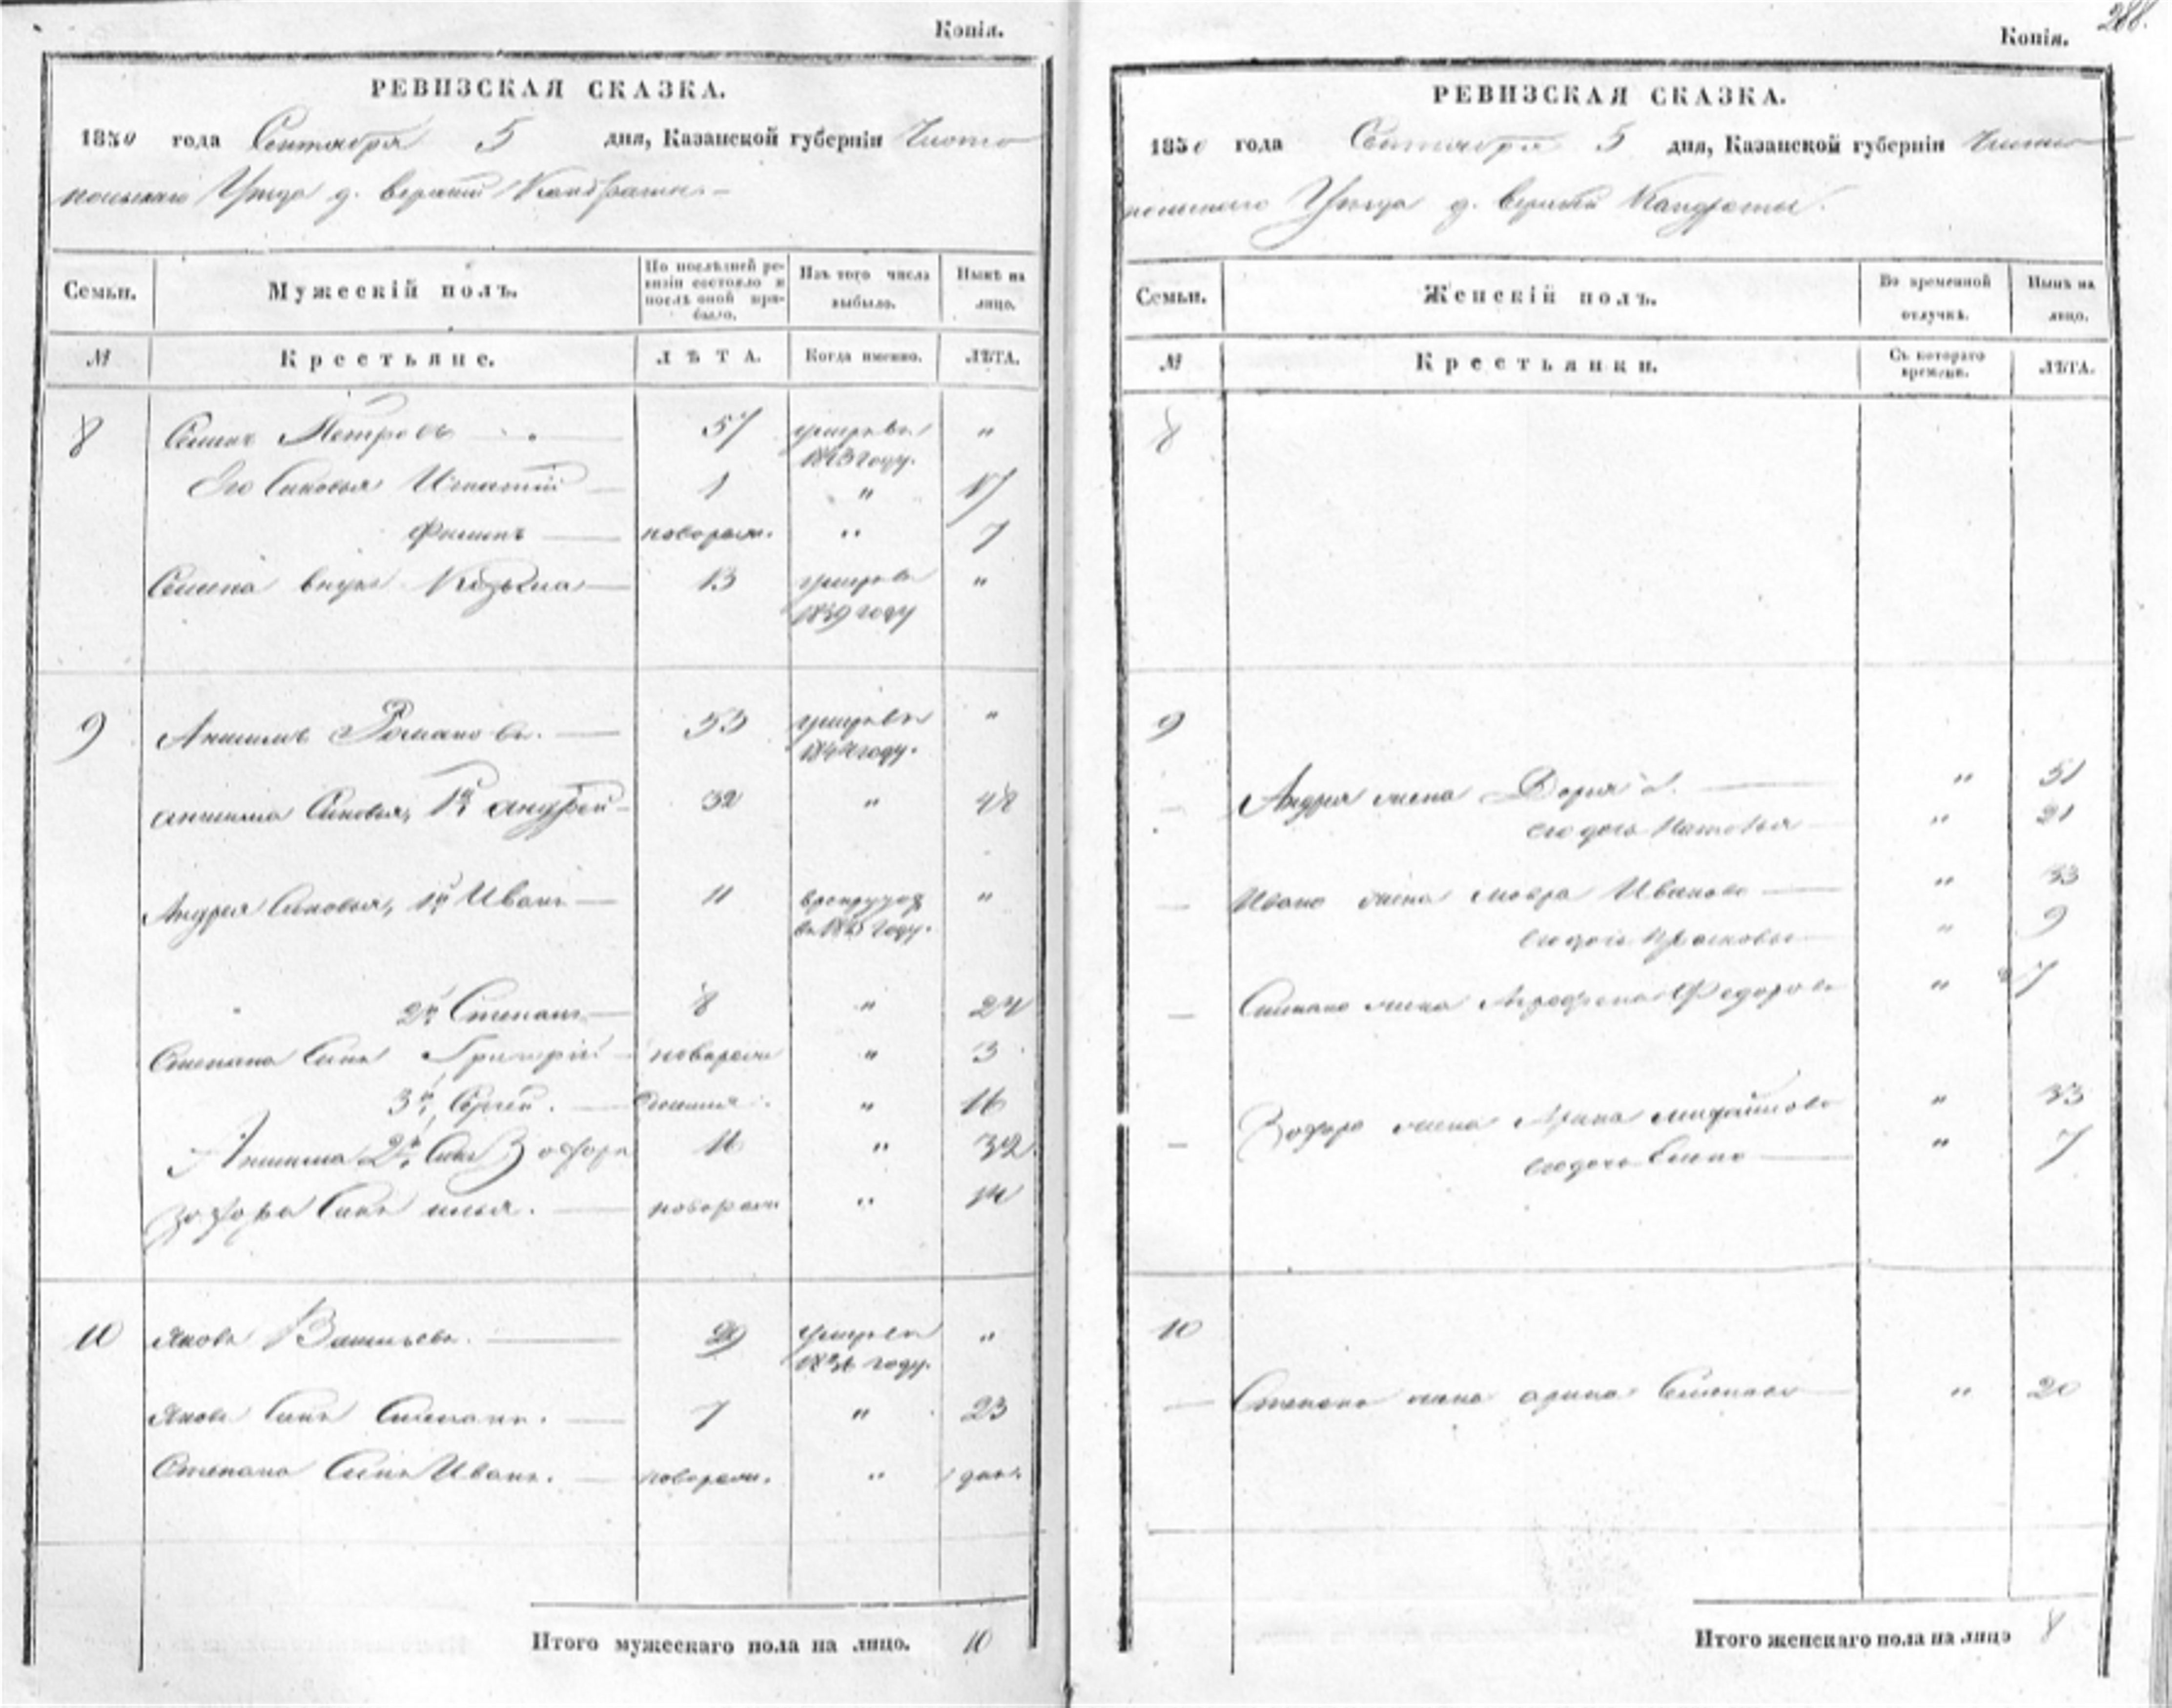 Копія.
РЕВИЗСКАЯ СКАЗКА.
1850 года Сентября 5 дня, Казанской губерніи Чисто
польскаго Уѣзда д. верхней Кандраты
Семьи.
Мужескій полъ.
По послѣдней ре-
визіи состояло и
послѣ оной при-
было.
Изъ того числа
выбыло.
Нынѣ на
лицо.
№
Крестьяне.
ЛѢТА.
Когда именно.
ЛѢТА.
8 Семенъ Петровъ 57 умеръ въ "
1843 году.
Его Сыновья Игнатій 1 " 17
Филипъ новорож. " 7
Семена внукъ Козьма 13 умеръ въ "
1839 году
9 Анисимъ Романовъ. 53 умеръ въ "
1844 году.
Анисима Сыновья, 1й Андрей 32 " 48
Андрея Сыновья, 1й Иванъ 11 в рекруты "
въ 1845 году.
2й Степанъ 8 " 24
Степана Сынъ Григорій новорож " 3
3й Сергей. " 16
Анисима 2й Сынъ Захаръ 16 " 32
Захара Сынъ илья. новорож " 14
10 Яковъ Васильевъ. 29 умеръ въ "
году.
Якова Сынъ Степанъ. 7 " 23
Степана Сынъ Иванъ. новорож. "
Итого мужескаго пола на лицо. 10
288.
Копія.
РЕВИЗСКАЯ СКАЗКА.
1850 года Сентября 5 дня, Казанской губерніи Чисто
польскаго Уѣзда д. верхней Кандраты.
Семьи.
Женскій полъ.
Во временной
отлучкѣ.
Нынѣ на
лицо.
№
Крестьянки.
Съ котораго
времени.
ЛѢТА.
8
9
Андрея жена Дарья " 51
его дочь Наталья " 21
Ивана жена Мавра Иванова " 33
его дочь Прасковья " 9
Степана жена Федорова "
Захара жена Арина Михайлова " 33
его дочь Елена " 7
10
Степана жена арина " 20
Итого женскаго пола на лицо 8